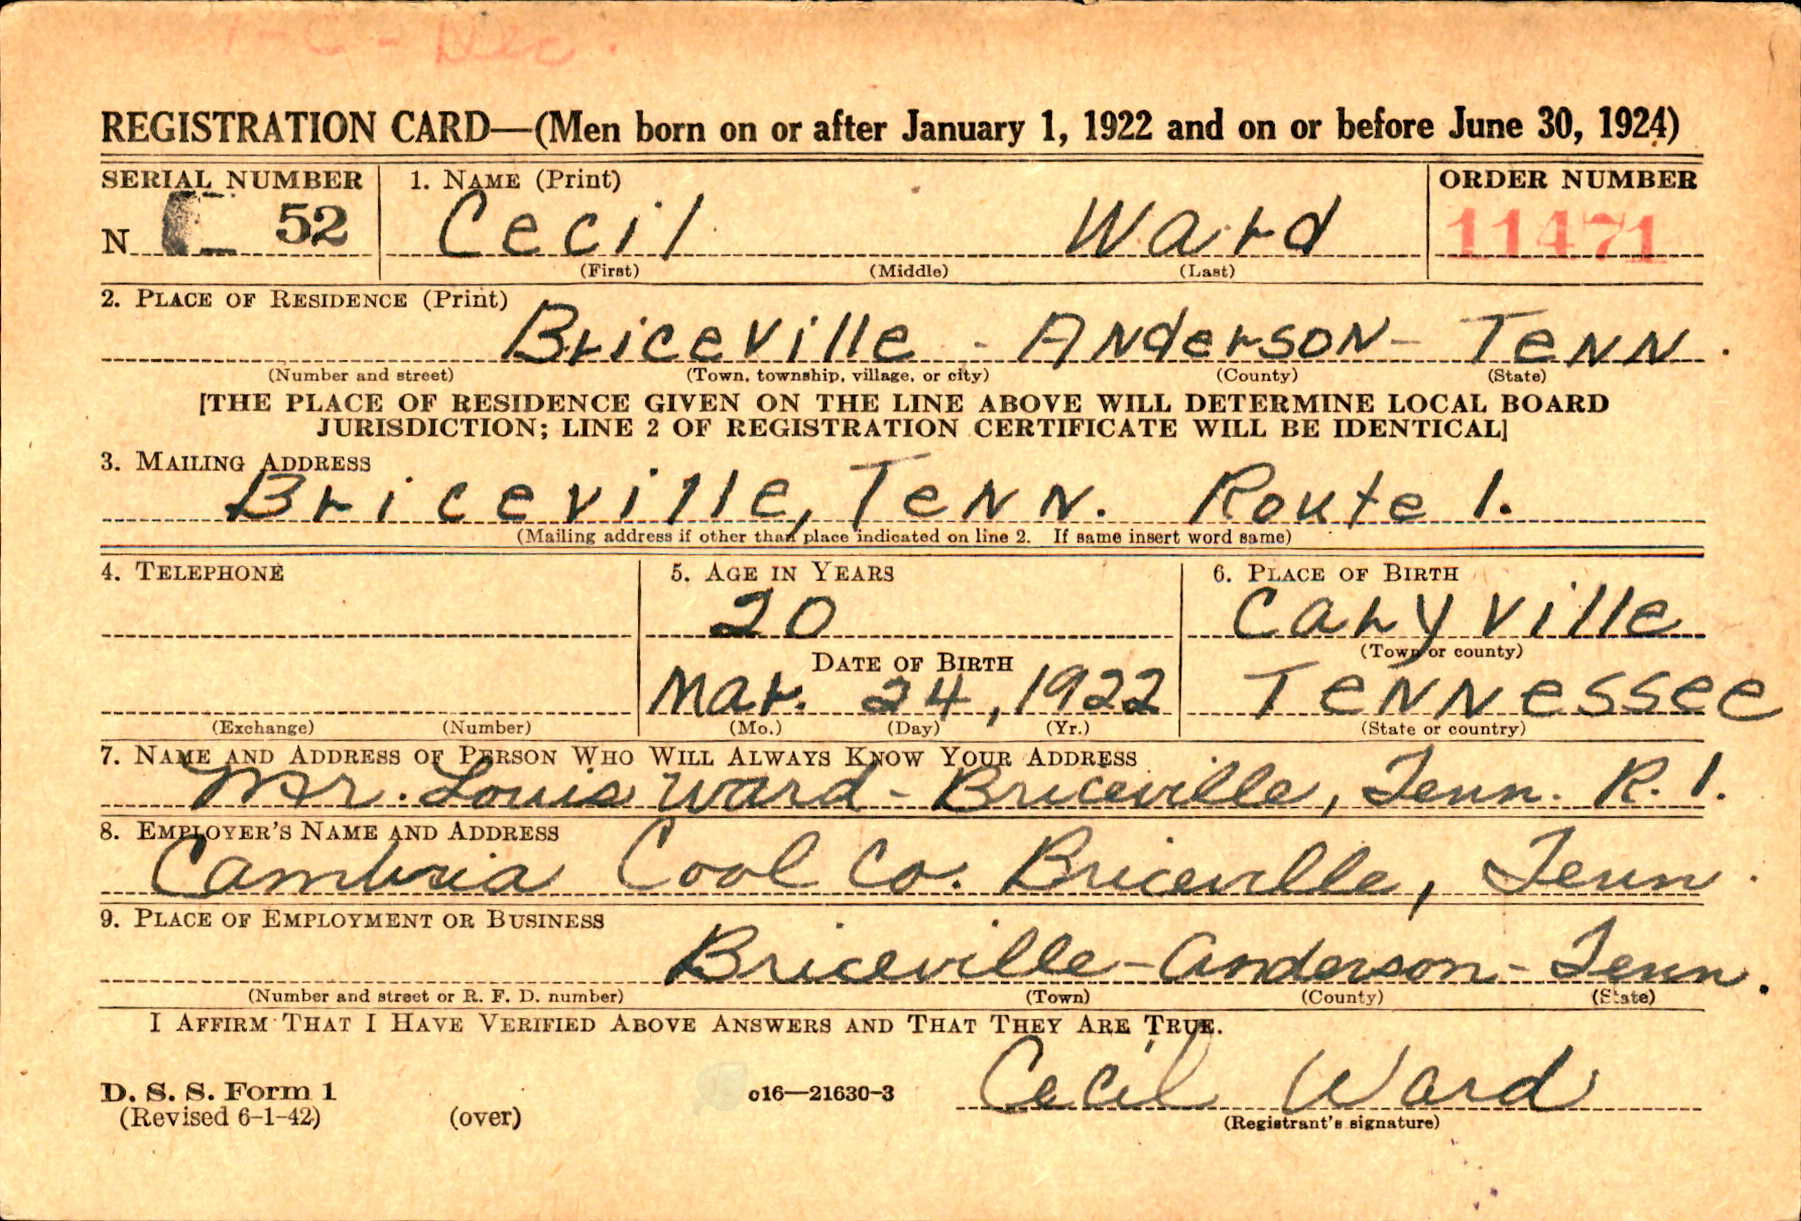 1-C - Dec.
REGISTRATION CARD—(Men born on or after January 1, 1922 and on or before June 30, 1924)
SERIAL NUMBER 1. NAME (Print) ORDER NUMBER
N 52 Cecil Ward 11471
(First) (Middle) (Last)
2. PLACE OF RESIDENCE (Print)
Briceville - Anderson - Tenn.
(Number and street) (Town, township, village, or city) (County) (State)
[THE PLACE OF RESIDENCE GIVEN ON THE LINE ABOVE WILL DETERMINE LOCAL BOARD
JURISDICTION; LINE 2 OF REGISTRATION CERTIFICATE WILL BE IDENTICAL]
3. MAILING ADDRESS
Briceville, Tenn. Route 1.
(Mailing address if other than place indicated on line 2. If same insert word same)
4. TELEPHONE 5. AGE IN YEARS 6. PLACE OF BIRTH
20 Caryville
DATE OF BIRTH (Town or county)
Mar. 24, 1922 Tennessee
(Exchange) (Number) (Mo.) (Day) (Yr.) (State or country)
7. NAME AND ADDRESS OF PERSON WHO WILL ALWAYS KNOW YOUR ADDRESS
Mr. Louis Ward - Briceville, Tenn. R. 1.
8. EMPLOYER'S NAME AND ADDRESS
Cambria Coal Co. Briceville, Tenn.
9. PLACE OF EMPLOYMENT OR BUSINESS
Briceville - Anderson - Tenn.
(Number and street or R. F. D. number) (Town) (County) (State)
I AFFIRM THAT I HAVE VERIFIED ABOVE ANSWERS AND THAT THEY ARE TRUE.
Cecil Ward
D. S. S. Form 1 c16—21630-3
(Revised 6-1-42) (over) (Registrant's signature)